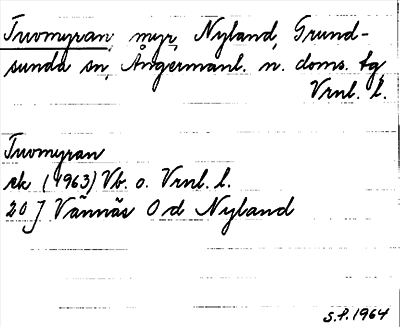 Tuvomyran, myr, Nyland, Grund-
sunda sn, Ångermanl. n. doms. tg
Vrnl. l.
Tuvomyran
rk (1963) Vb. o. Vrnl. l.
20 J Vännäs Od Nyland
S.f. 1964